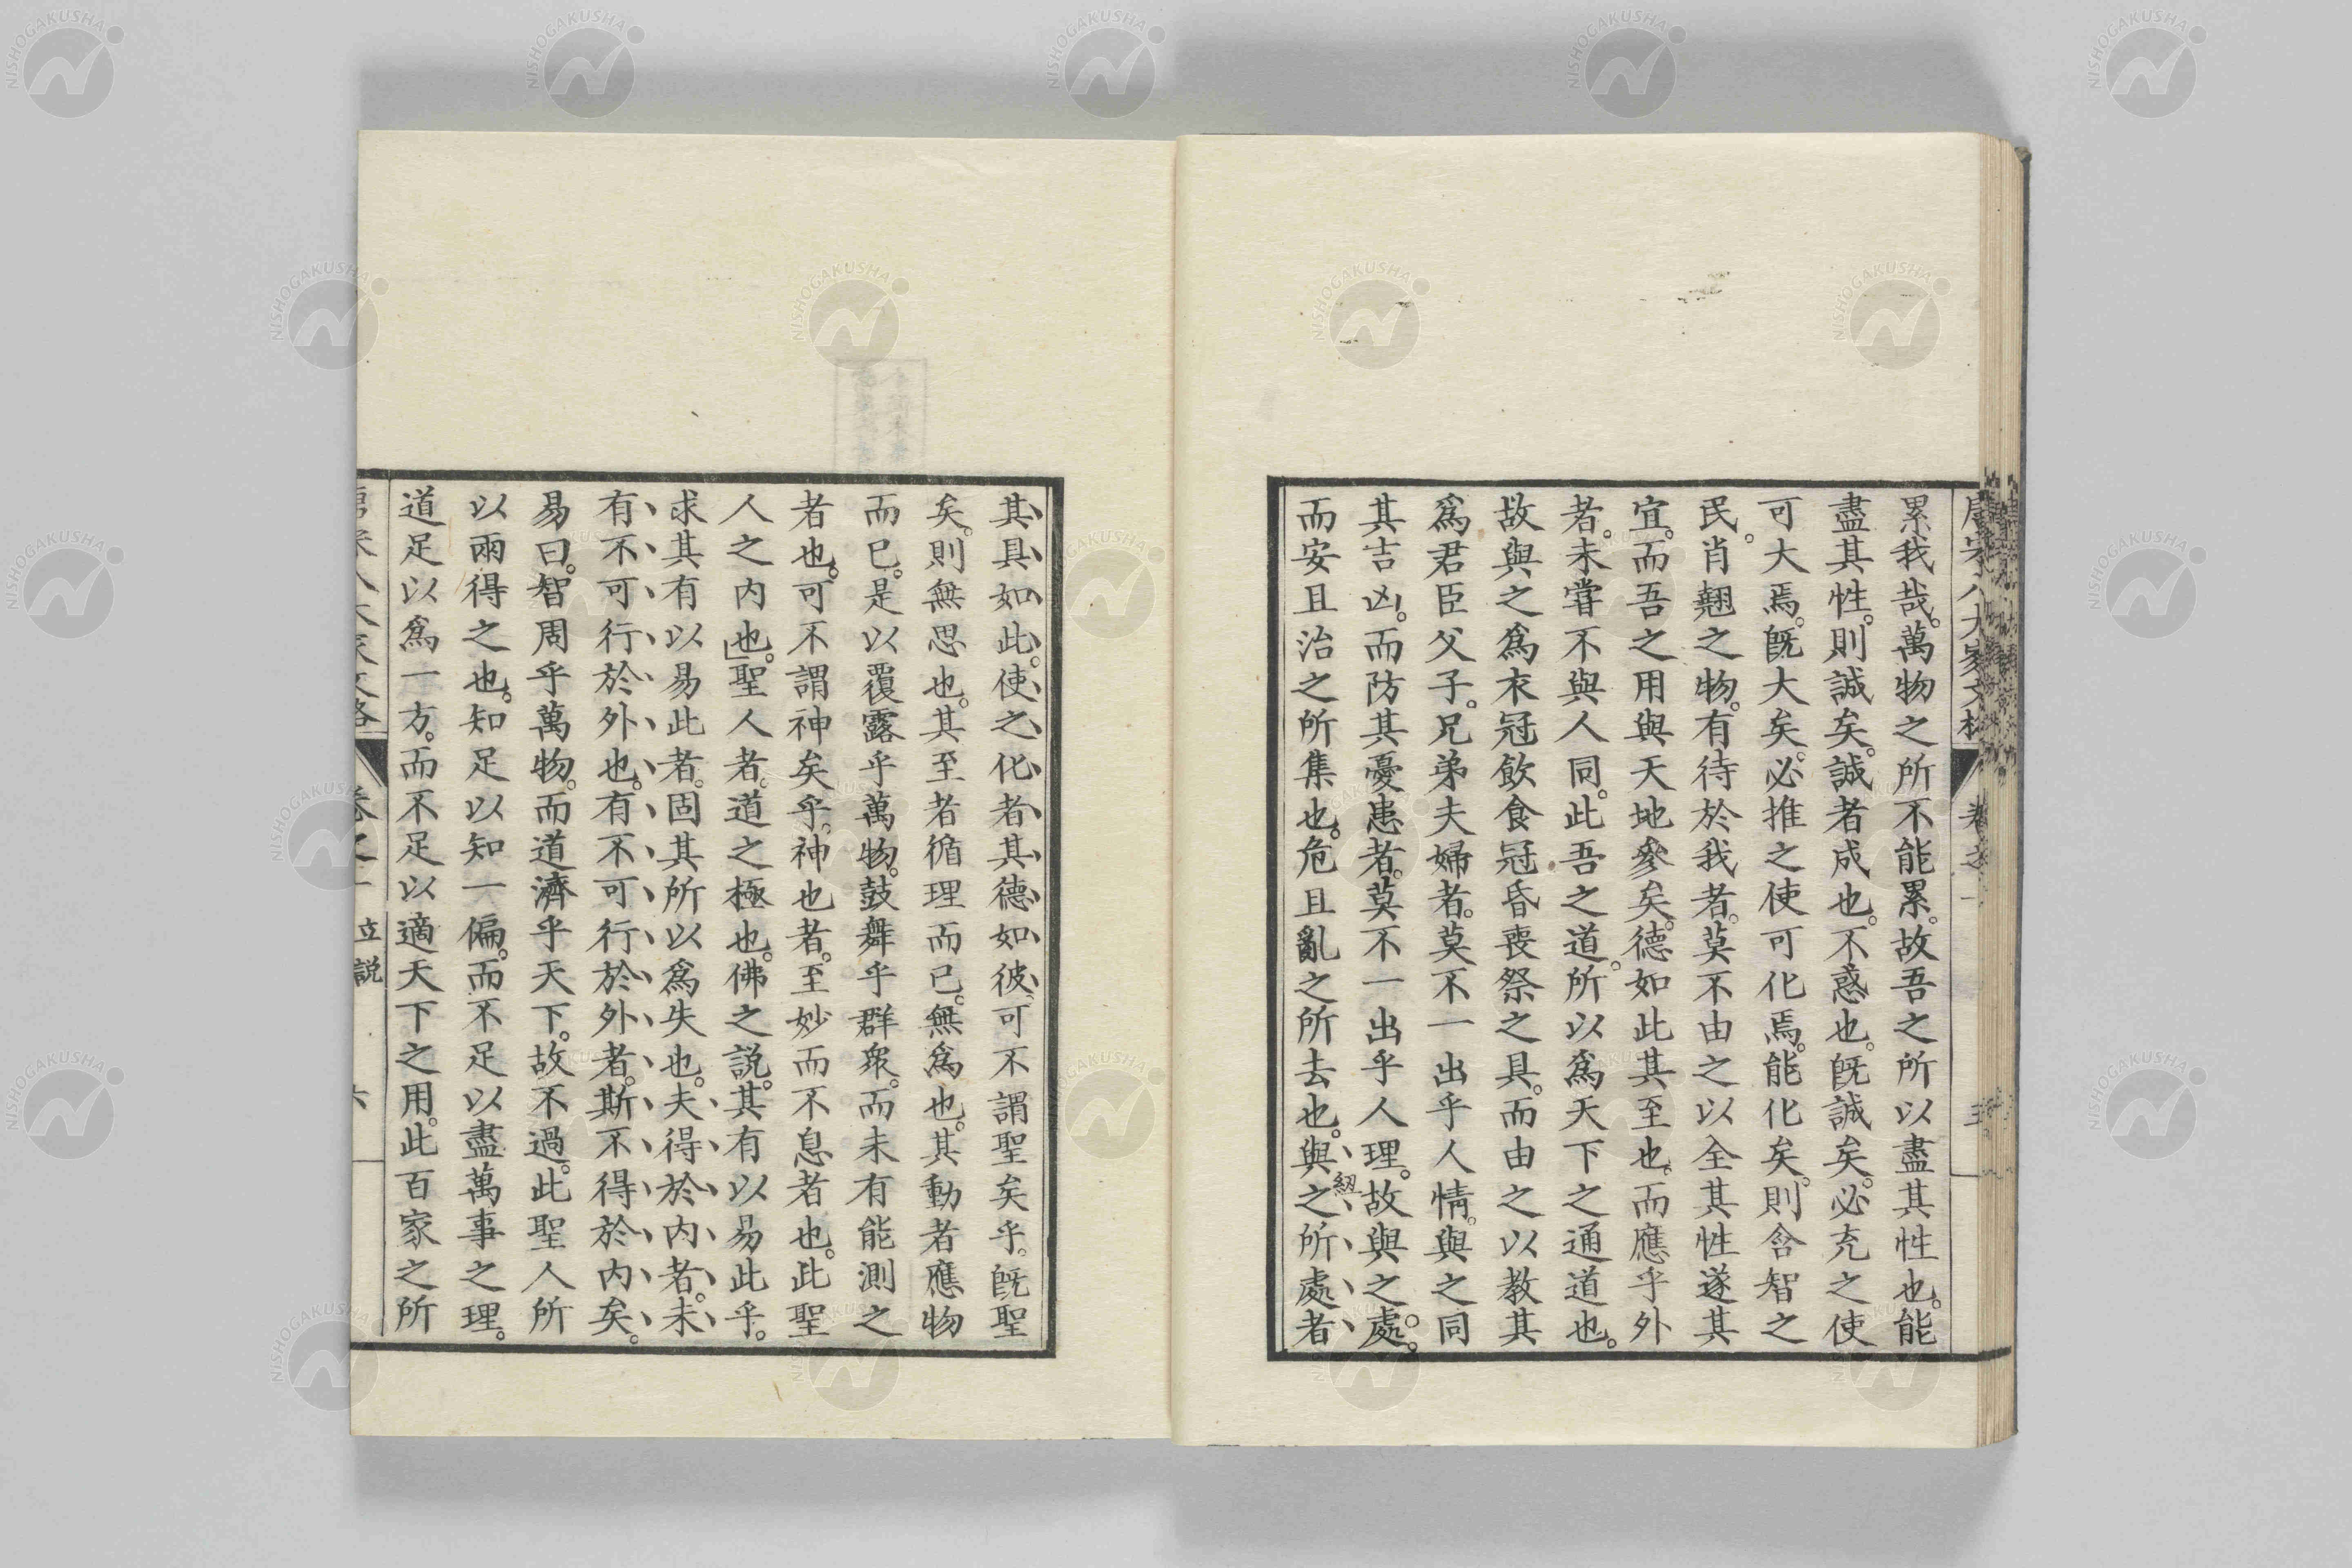 累我哉。萬物之所不能累。故吾之所以盡其性也。能
盡其性。則誠矣。誠者成也。不惑也。既誠矣。必充之使
可大焉。既大矣。必推之使可化焉。能化矣。則含智之
民。肖翹之物。有待於我者。莫不由之以全其性遂其
宜。而吾之用與天地參矣。德如此其至也。而應乎外
者。未嘗不與人同。此吾之道。所以為天下之通道也。
故與之為衣冠飲食冠昏喪祭之具。而由之以教其
為君臣父子。兄弟夫婦者。莫不一出乎人情。與之同
其吉凶。而防其憂患者。莫不一出乎人理。故與之處。
而安且治之所集也。危且亂之所去也。與之所處者
其具如此。使之化者其德如彼。可不謂聖矣乎。既聖
矣。則無思也。其至者循理而已。無為也。其動者應物
而已。是以覆露乎萬物。鼓舞乎群衆。而未有能測之
者也。可不謂神矣乎。神也者。至妙而不息者也。此聖
人之内也。聖人者。道之極也。佛之說。其有以易此乎。
求其有以易此者。固其所以為失也。夫得於内者。未
有不可行於外也。有不可行於外者。斯不得於内矣。
易曰。智周乎萬物。而道濟乎天下。故不過。此聖人所
以兩得之也。知足以知一偏。而不足以盡萬事之理。
道足以為一方。而不足以適天下之用。此百家之所
立說
NISHOGAKUSHA